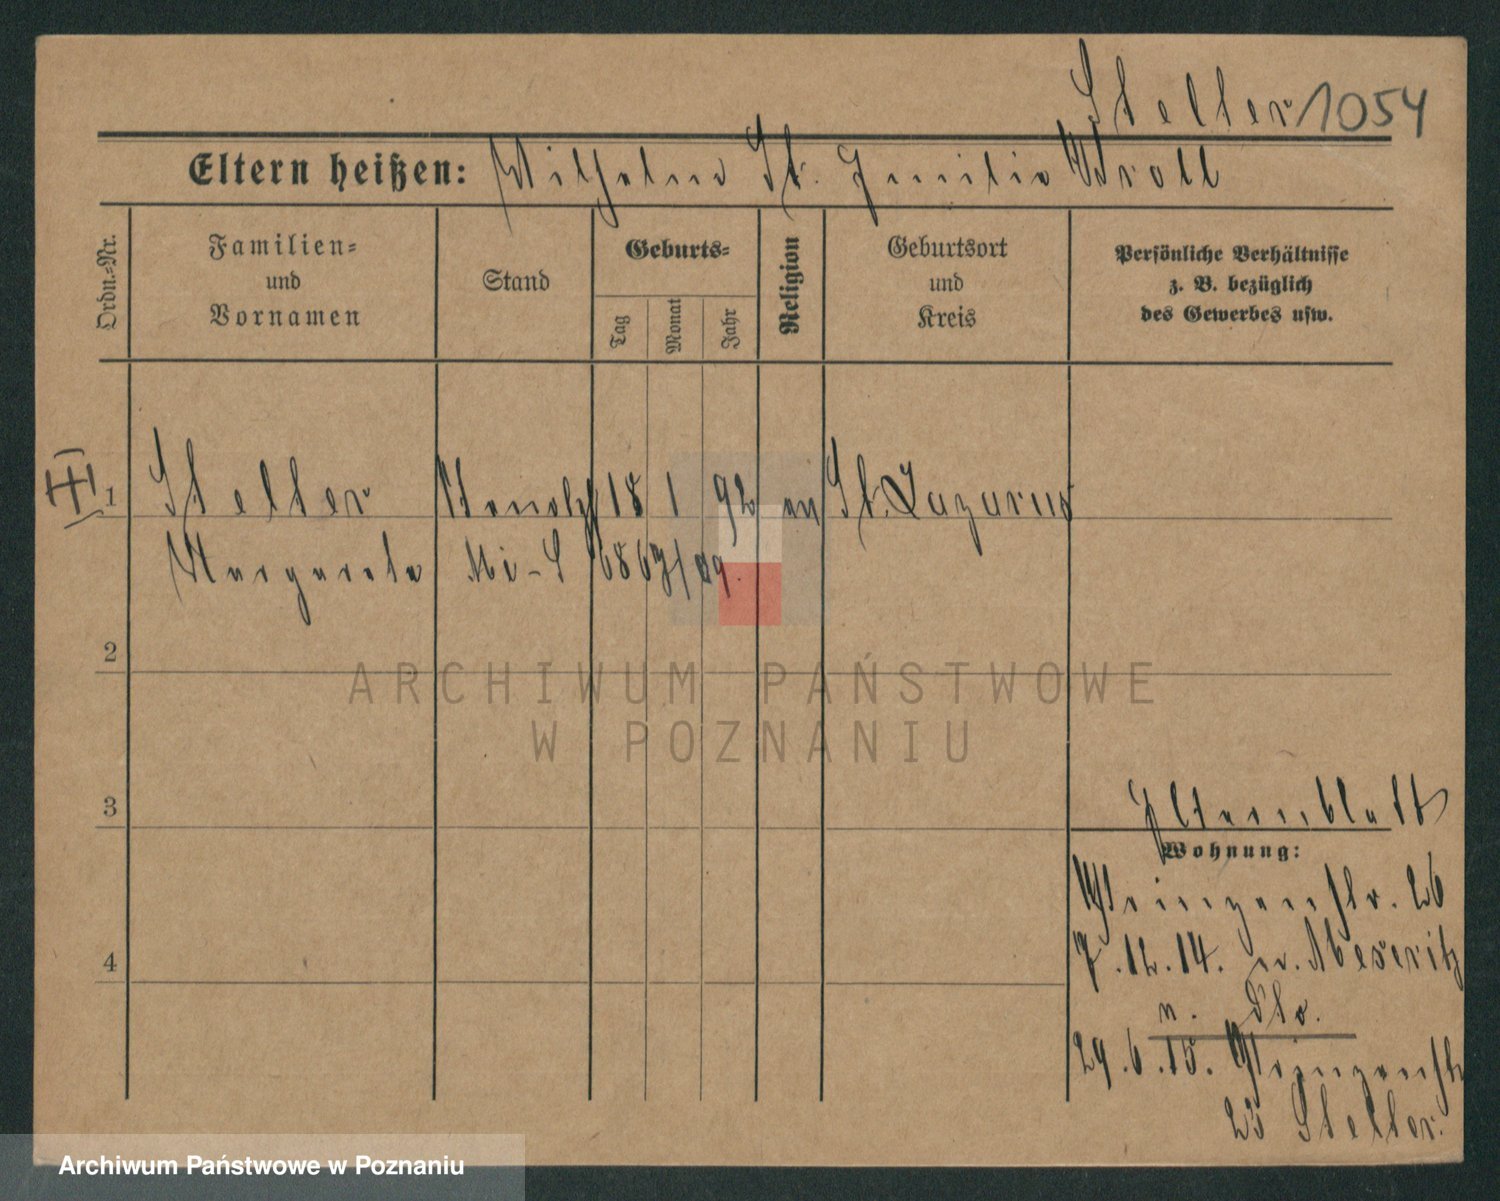 Stelter 1054
Eltern heißen: Wilhelm St. Emilie Kroll
Ordn.=Nr.
Familien=
und
Vornamen
Stand
Geburts=
Tag
Monat
Jahr
Religion
Geburtsort
und
Kreis
Persönliche Verhältnisse
z. B. bezüglich
des Gewerbes usw.
III
1 Stelter 18 1 92 ev St. Lazarus
Margarete
2
3
4
Elternblatt
Wohnung:
Prinzenstr. 26
7.12.14. v. Meseritz
n.
29.6.15. Prinzenstr
25 Stelter.
ARCHIWUM PAŃSTWOWE
W POZNANIU
Archiwum Państwowe w Poznaniu